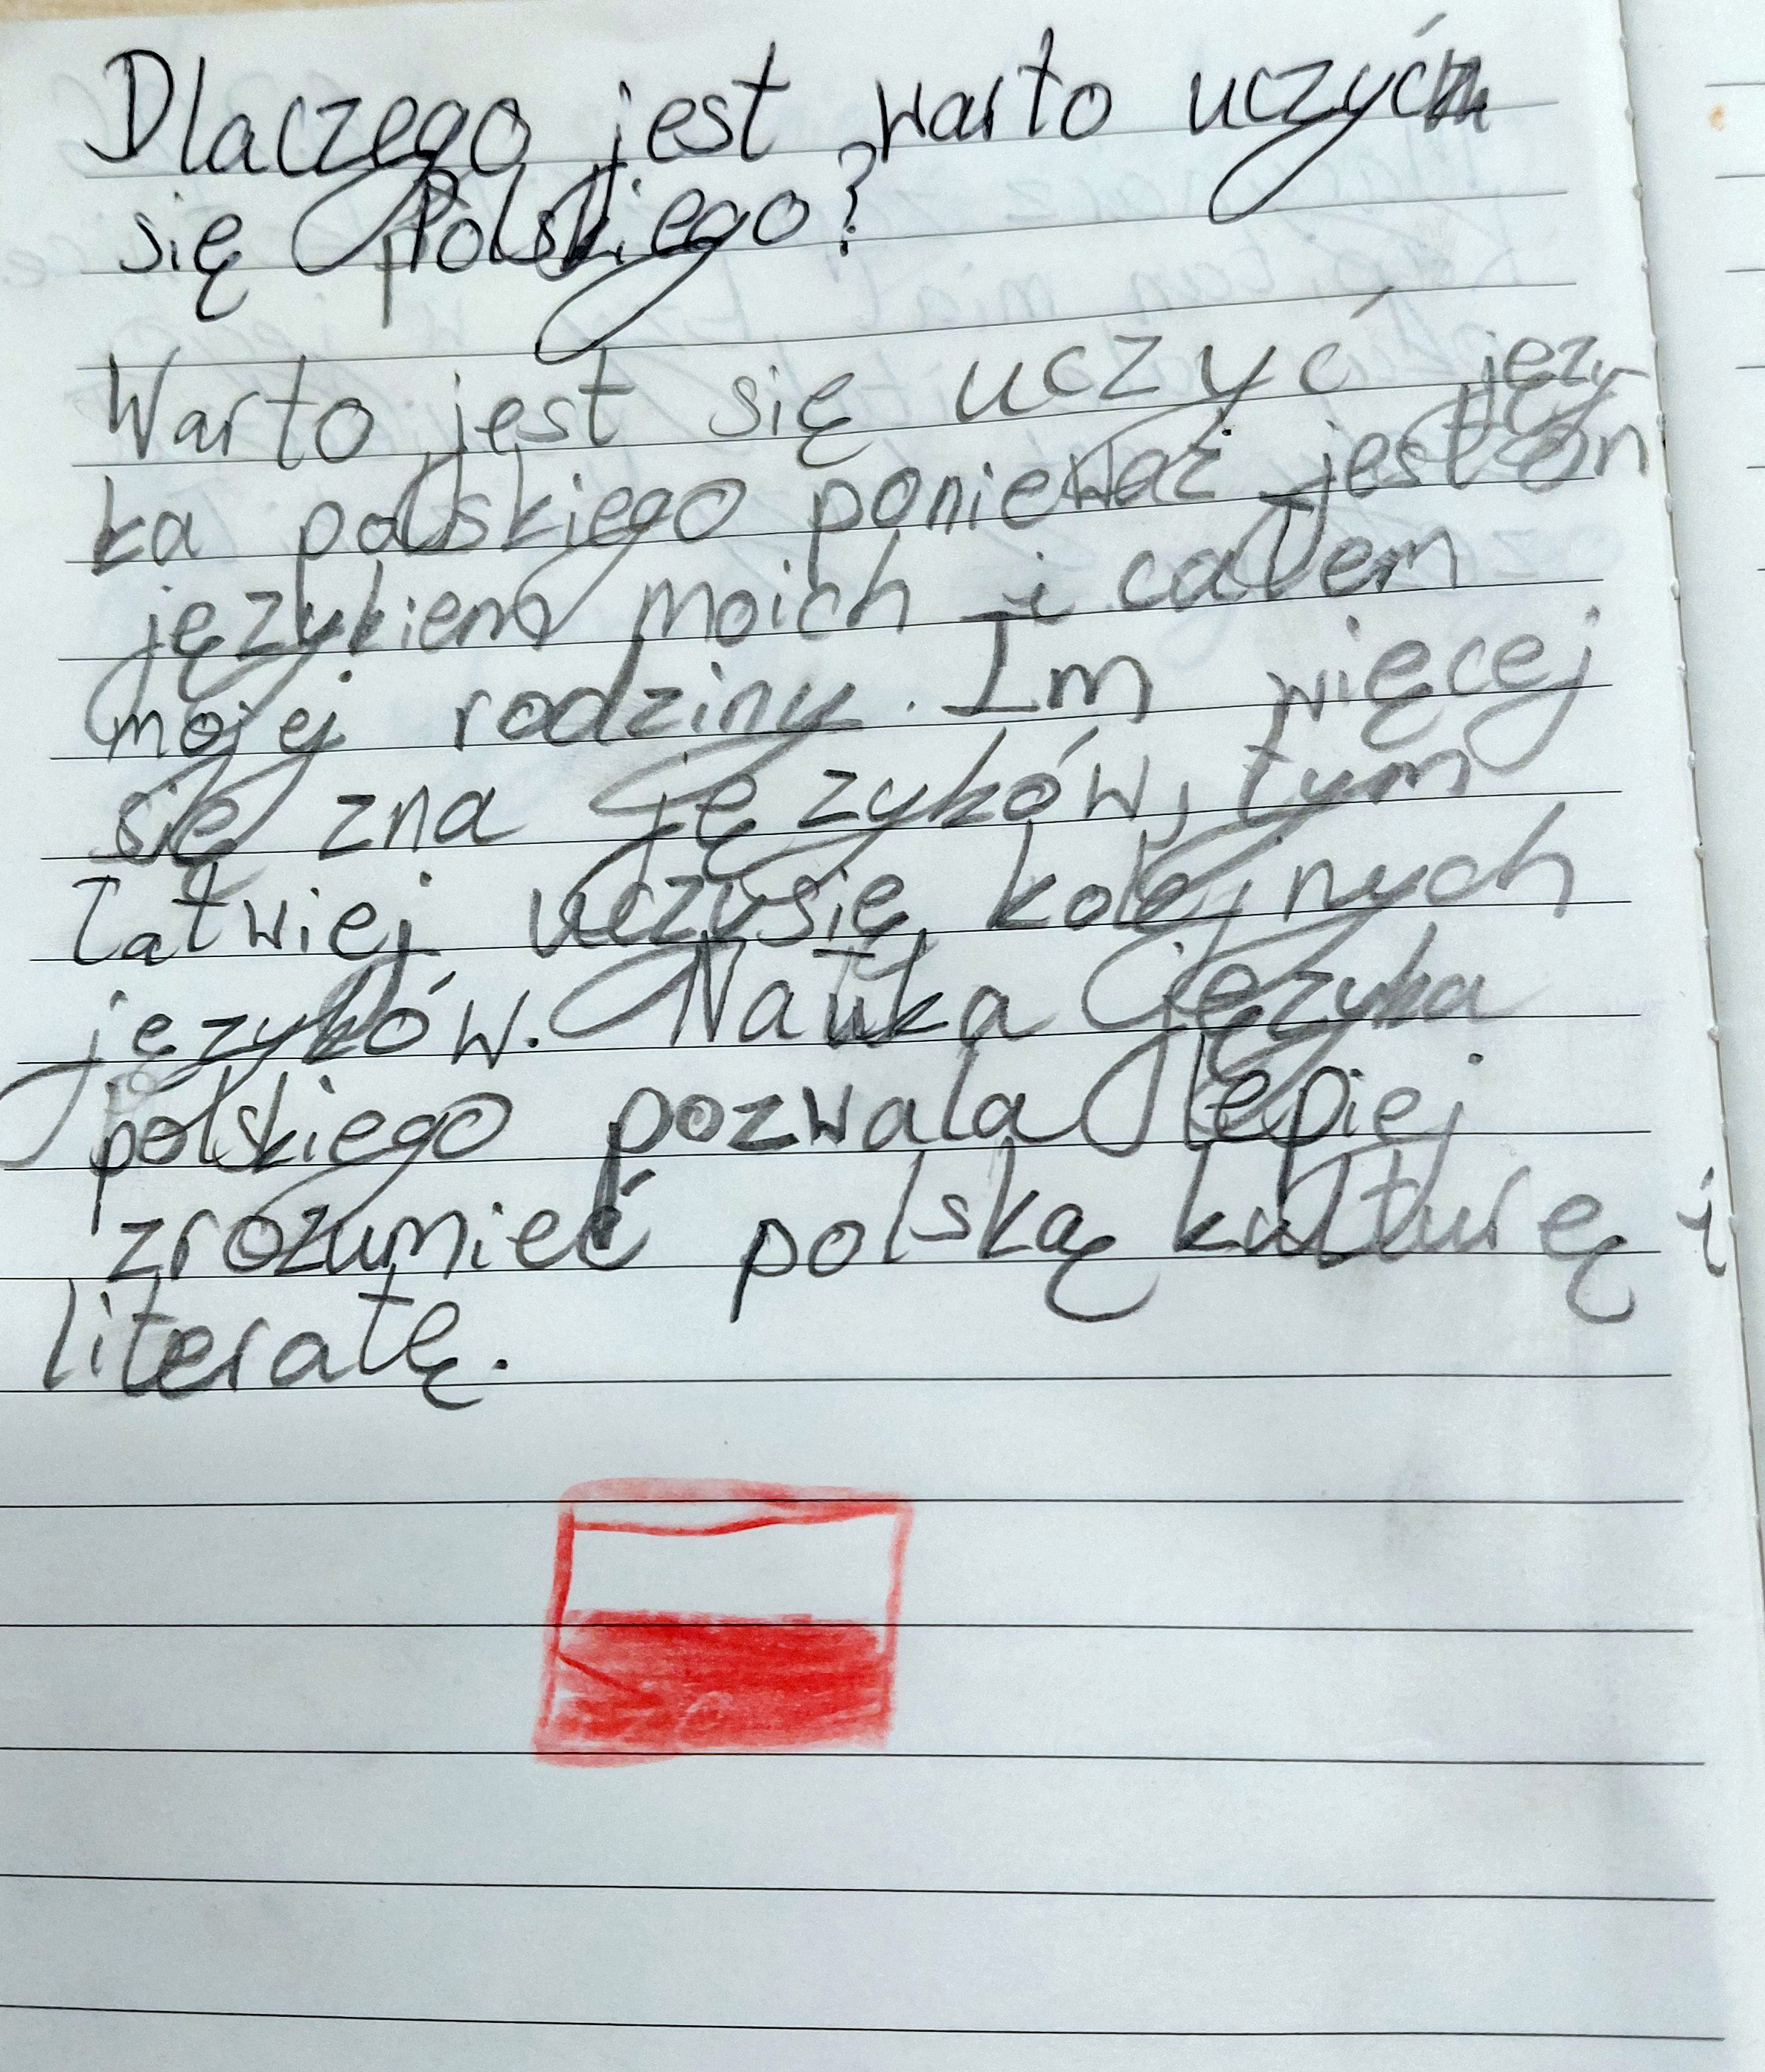 Dlaczego jest warto uczyć
się Polskiego?
Warto jest się uczyć języ-
ka polskiego ponieważ jest on
językiem moich i całem
mojej rodziny. Im więcej
się zna języków, tym
łatwiej uczysię kolejnych
języków. Nauka języka
polskiego pozwala lepiej
zrozumieć polską kulturę i
literatę.